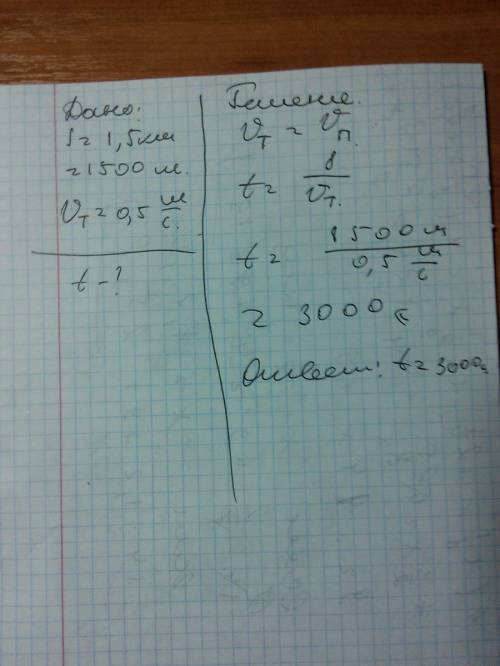 Дано:
S = 1,5 км
= 1500 м.
V_т = 0,5 м/с.
t - ?
Решение.
V_т = V_п.
t = S/V_т.
t = 1500 м / 0,5 м/с
= 3000 с
Ответ: t = 3000с